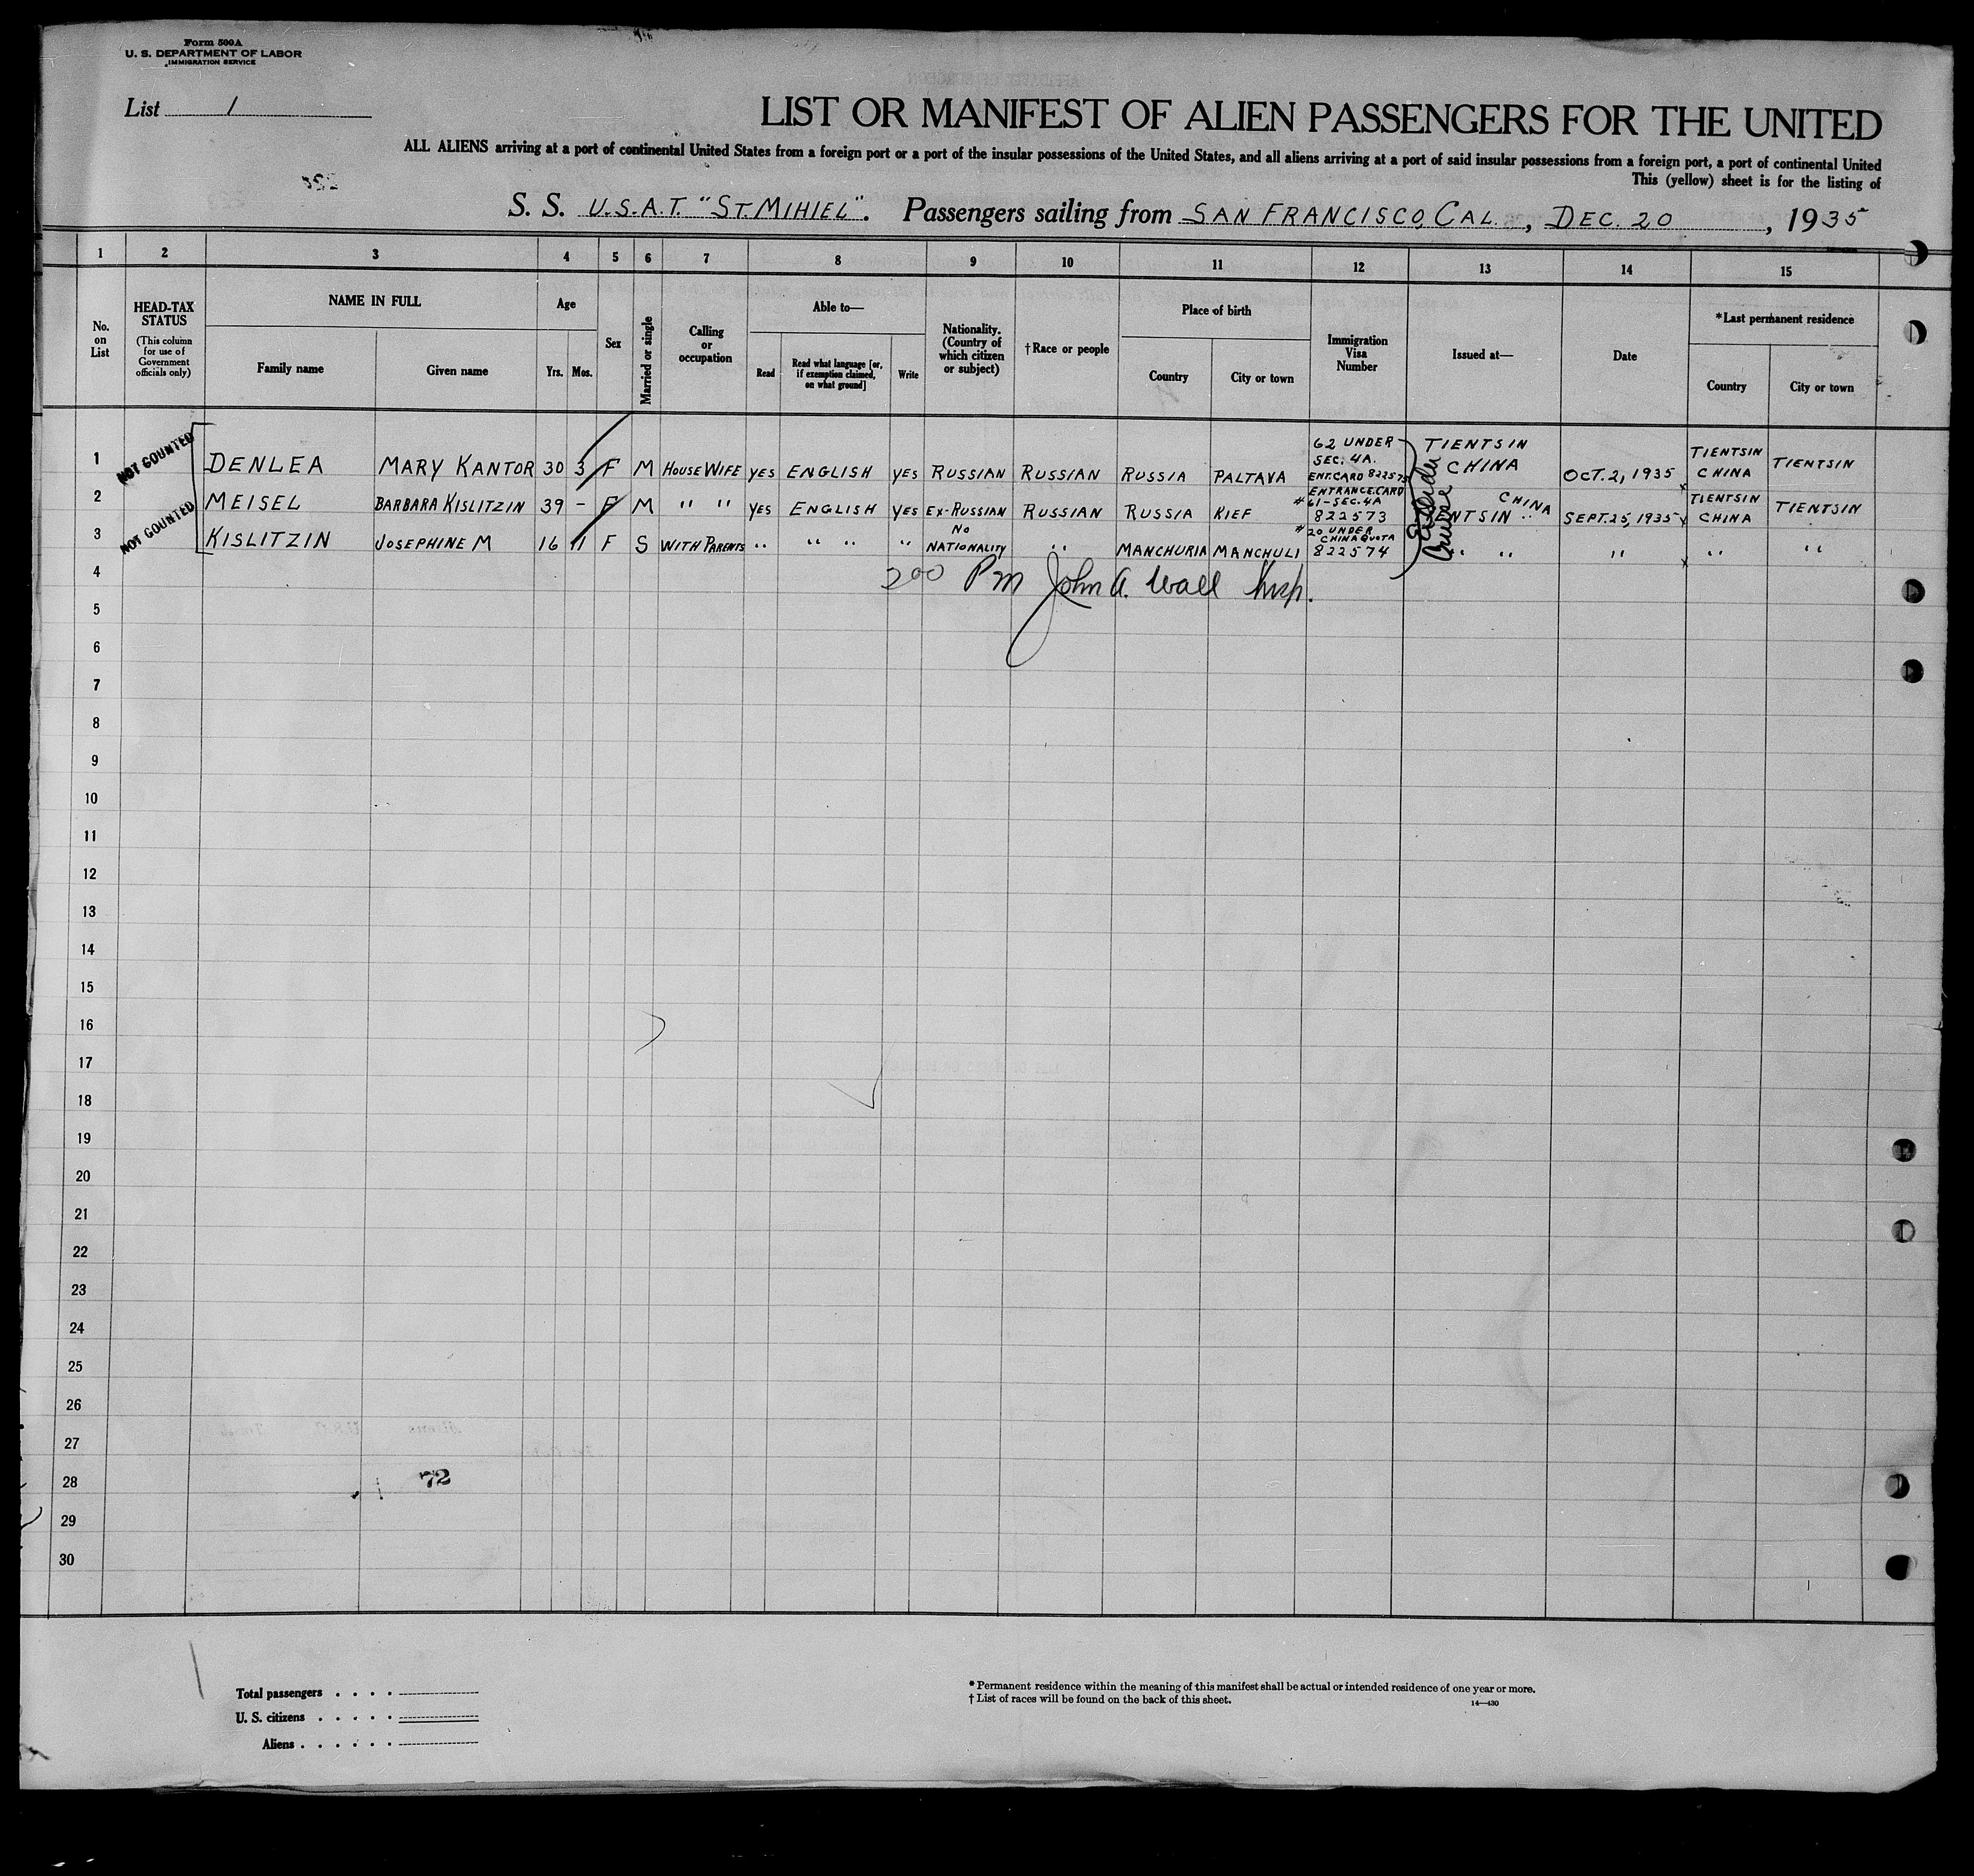 Form 500A
U. S. DEPARTMENT OF LABOR
IMMIGRATION SERVICE
List 1
LIST OR MANIFEST OF ALIEN PASSENGERS FOR THE UNITED
ALL ALIENS arriving at a port of continental United States from a foreign port or a port of the insular possessions of the United States, and all aliens arriving at a port of said insular possessions from a foreign port, a port of continental United
This (yellow) sheet is for the listing of
S. S. U.S.A.T. "ST. MIHIEL". Passengers sailing from SAN FRANCISCO, CAL., DEC. 20, 1935
1 2 3 4 5 6 7 8 9 10 11 12 13 14 15
No. on List
HEAD-TAX STATUS
(This column for use of Government officials only)
NAME IN FULL
Family name
Given name
Age
Yrs. Mos.
Sex
Married or single
Calling or occupation
Able to—
Read
Read what language [or, if exemption claimed, on what ground]
Write
Nationality. (Country of which citizen or subject)
†Race or people
Place of birth
Country
City or town
Immigration Visa Number
Issued at—
Date
*Last permanent residence
Country
City or town
NOT COUNTED
1 DENLEA MARY KANTOR 30 3 F M HOUSE WIFE YES ENGLISH YES RUSSIAN RUSSIAN RUSSIA PALTAVA 62 UNDER SEC. 4A. ENT. CARD 822575 TIENTSIN CHINA OCT. 2, 1935 TIENTSIN CHINA TIENTSIN
NOT COUNTED
2 MEISEL BARBARA KISLITZIN 39 - F M " " YES ENGLISH YES EX-RUSSIAN RUSSIAN RUSSIA KIEF ENTRANCE CARD #61-SEC. 4A 822573 NTSIN CHINA SEPT. 25, 1935 TIENTSIN CHINA TIENTSIN
3 KISLITZIN JOSEPHINE M 16 11 F S WITH PARENTS " " " " NO NATIONALITY " MANCHURIA MANCHULI #20 UNDER CHINA QUOTA 822574 " " " " "
4
2 00 Pm John A. Wall Insp.
5
6
7
8
9
10
11
12
13
14
15
16
17
18
19
20
21
22
23
24
25
26
27
28
72
29
30
Total passengers . . . .
U. S. citizens . . . . .
Aliens . . . . . .
* Permanent residence within the meaning of this manifest shall be actual or intended residence of one year or more.
† List of races will be found on the back of this sheet.
14—430